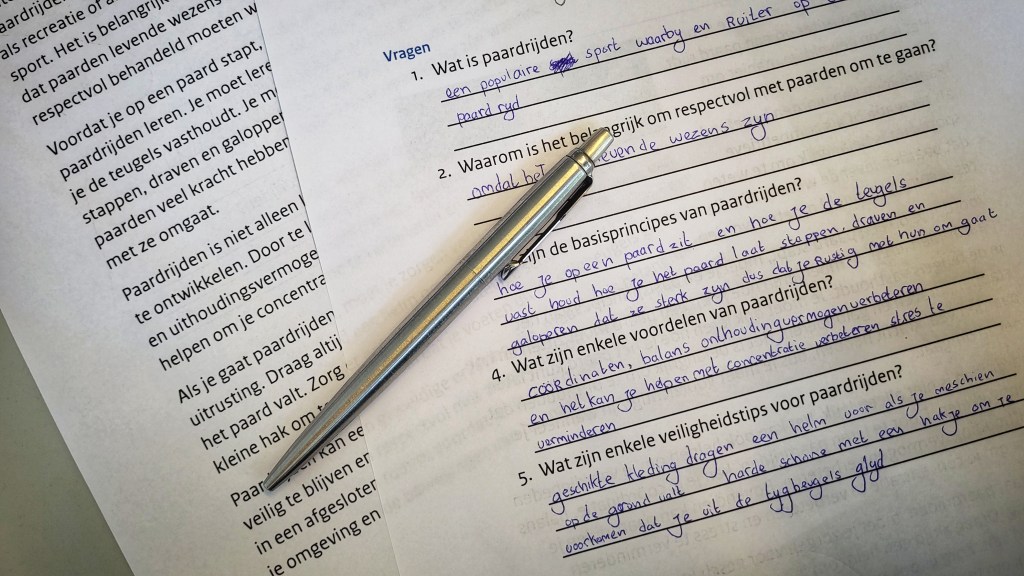 aardrijden
als recreatie of a
sport. Het is belangrijk
dat paarden levende wezens
respectvol behandeld moeten w
Voordat je op een paard stapt,
paardrijden leren. Je moet lere
je de teugels vasthoudt. Je m
stappen, draven en galopper
paarden veel kracht hebben
met ze omgaat.
Paardrijden is niet alleen l
te ontwikkelen. Door te
en uithoudingsvermoge
helpen om je concentra
Als je gaat paardrijden
uitrusting. Draag altij
het paard valt. Zorg
kleine hak om t
Paar en kan ee
veilig te blijven er
in een afgesloter
je omgeving en
Vragen
1. Wat is paardrijden?
een populaire sport waarby en Ruiter op
paard ryd
2. Waarom is het bel grijk om respectvol met paarden om te gaan?
omdat het even de wezens zyn
ijn de basisprincipes van paardrijden?
hoe je op een paard zit en hoe je de teugels
vast houd hoe je het paard laat stappen, draven en
galoperen dat ze sterk zyn dus dat je Rustig met hun om gaat
4. Wat zijn enkele voordelen van paardrijden?
coördinaten, balans onthoudingvermogen verbeteren
en het kan je helpen met concentratie verbeteren stres te
verminderen
5. Wat zijn enkele veiligheidstips voor paardrijden?
geschikte kleding dragen een helm voor als je meschien
op de grond valt harde schone met een hakje om te
voorkomen dat je uit de tygbeugels glyd